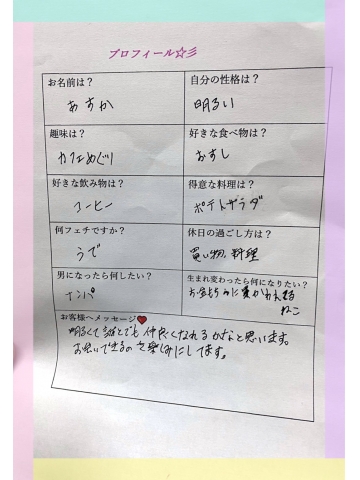 プロフィール☆彡
お名前は?
自分の性格は?
あすか
明るい
趣味は?
好きな食べ物は?
カフェめぐり
おすし
好きな飲み物は?
得意な料理は?
コーヒー
ポテトサラダ
何フェチですか?
休日の過ごし方は?
うで
買い物、料理
男になったら何したい?
生まれ変わったら何になりたい?
ナンパ
お金持ちに愛がわれる
ねこ
お客様へメッセージ❤
明るくて誰とでも仲良くなれるかなと思います。
お会いできるの楽しみにしてます。